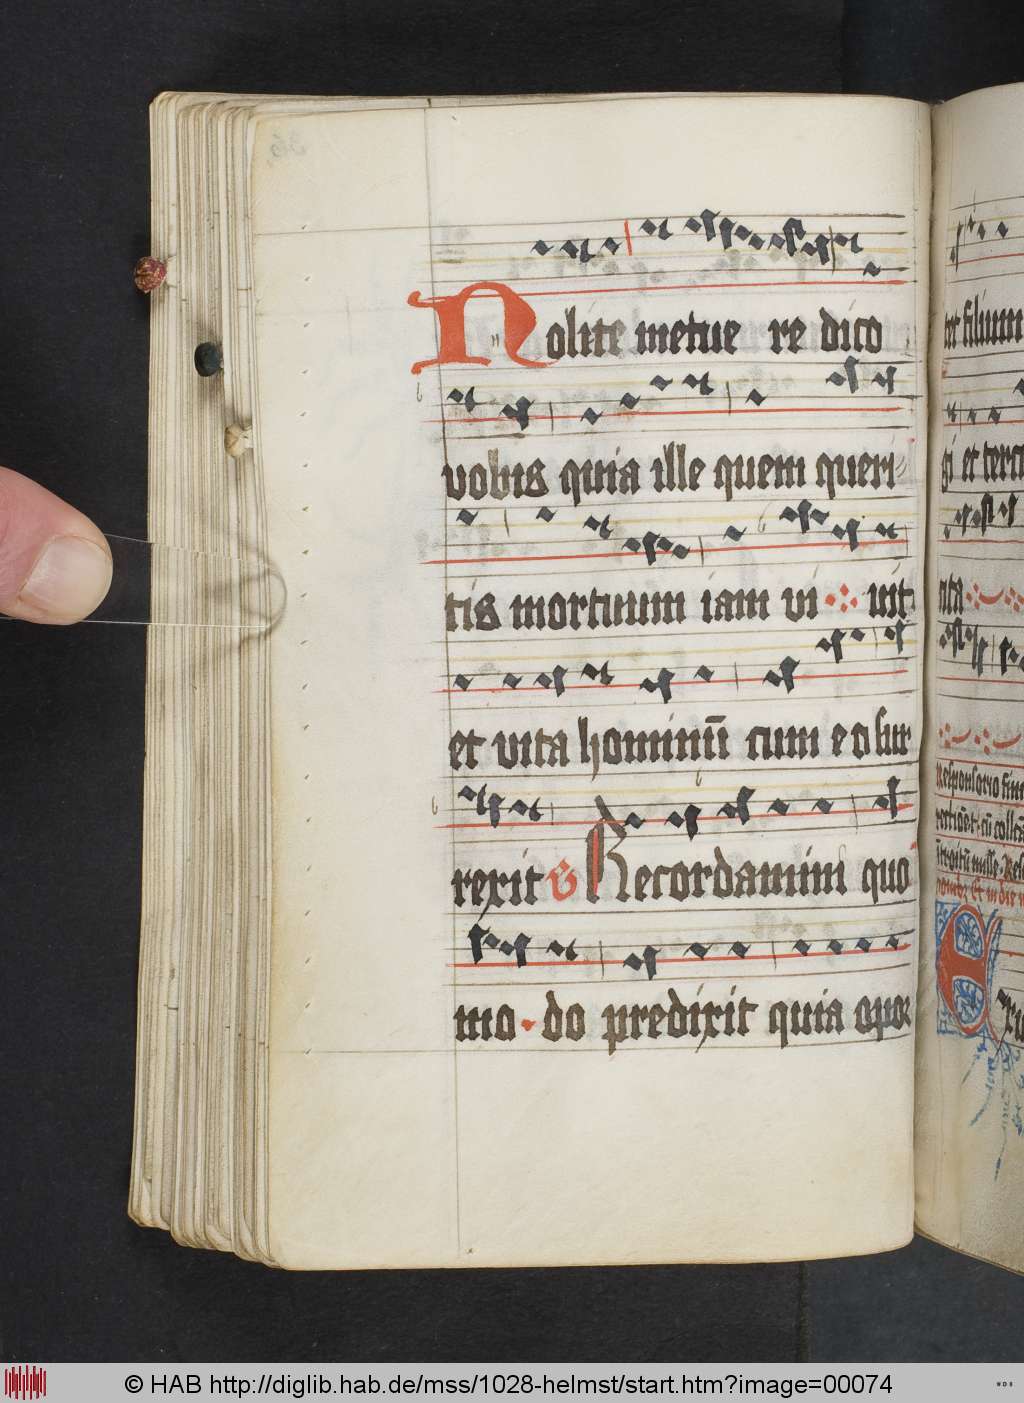 Nolite metue re dico
vobis quia ille quem queri
tis mortuum iam vi vit
et vita hominū cum eo sur
rexit Recordamini quo
mo do predixit quia opor
filium
et terci
© HAB http://diglib.hab.de/mss/1028-helmst/start.htm?image=00074